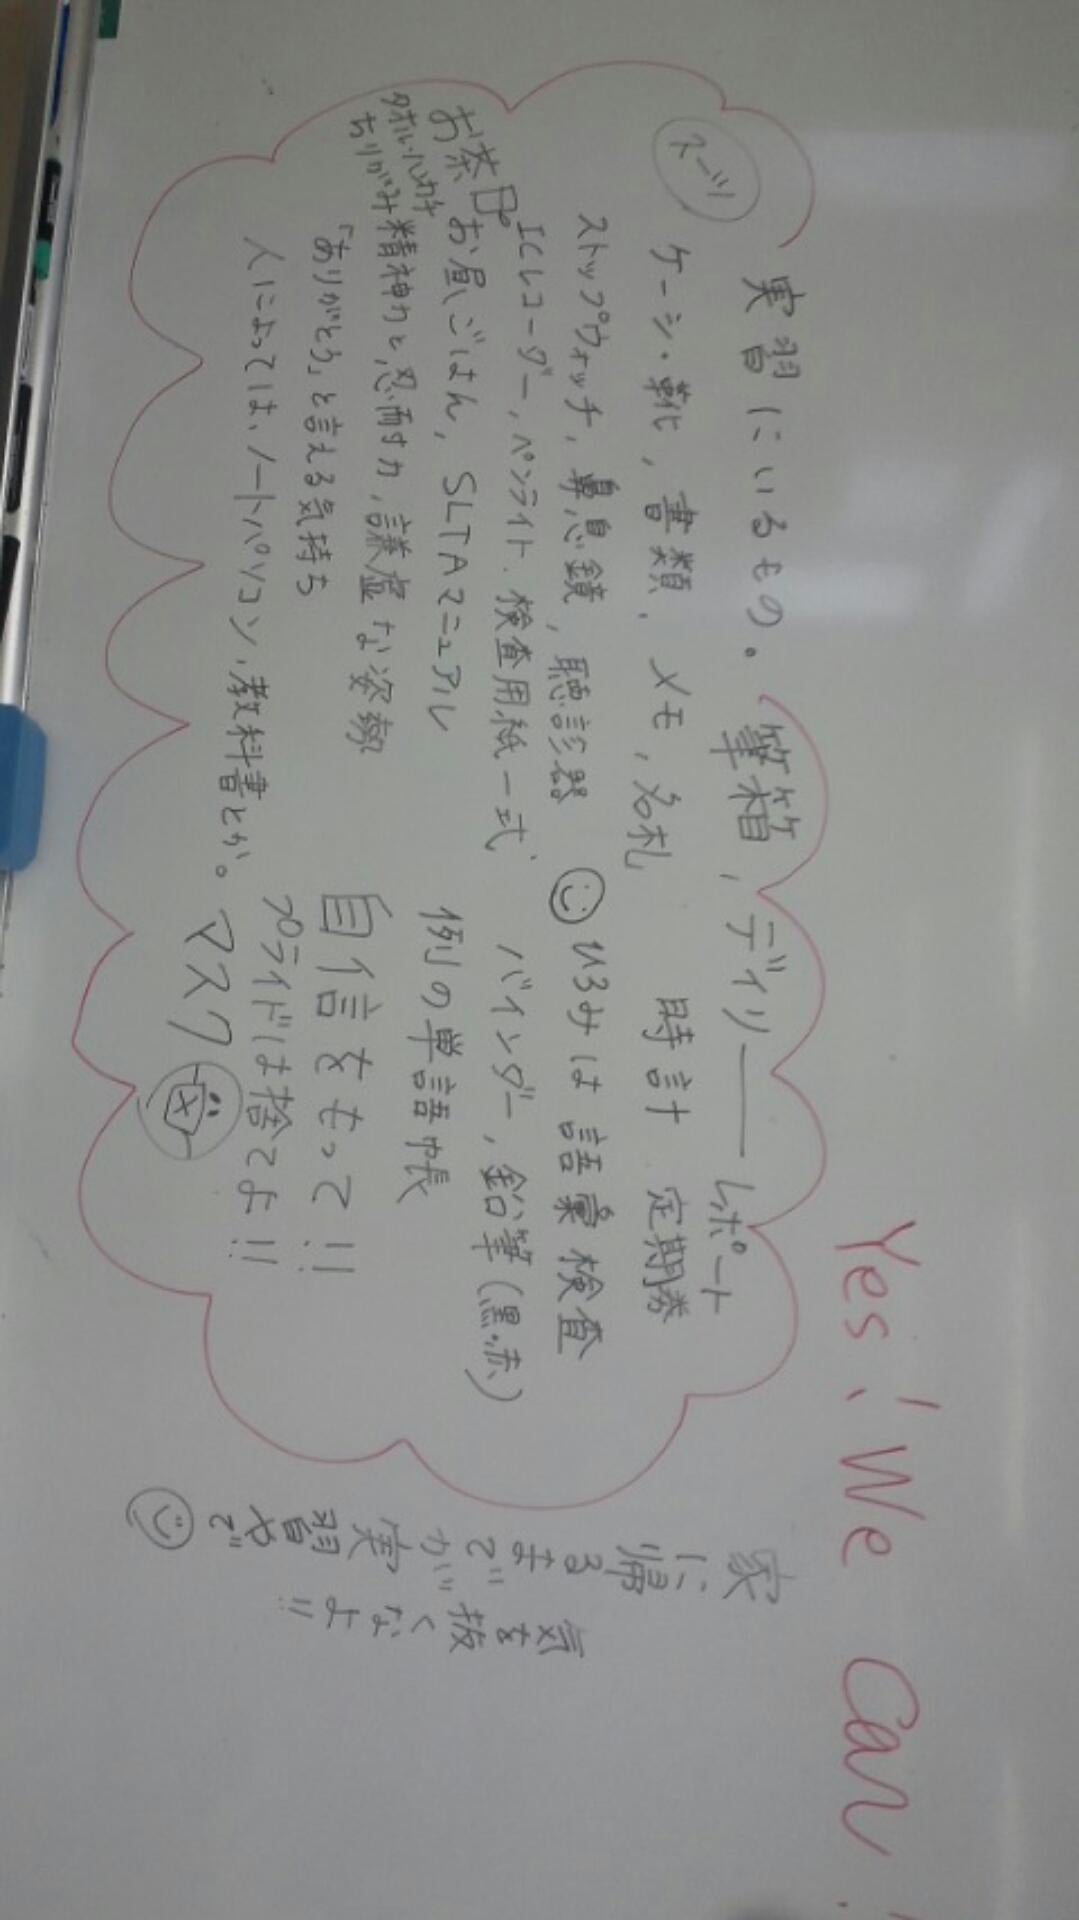 Yes! We Can!
実習にいるもの。筆箱，デイリーレポート
スーツ
ケーシ・靴，書類，メモ，名札 時計 定期券
ストップウォッチ，鼻息鏡，聴診器 ひろみは語彙検査
ICレコーダー，ペンライト，検査用紙一式、バインダー，鉛筆(黒・赤)
お茶
お昼ごはん，SLTAマニュアル 例の単語帳
タオル・ハンカチ
ちりがみ
精神力と忍耐力，謙虚な姿勢 自信をもって!!
「ありがとう」と言える気持ち プライドは捨てよ!!
人によっては、ノートパソコン、教科書とか。 マスク
家に帰るまでが実習やで
気を抜くなよ!!